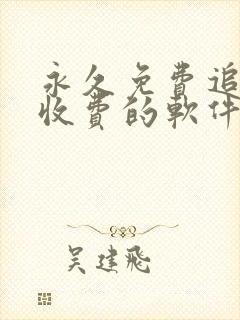 永久免費追
收費的軟件
吴建飛